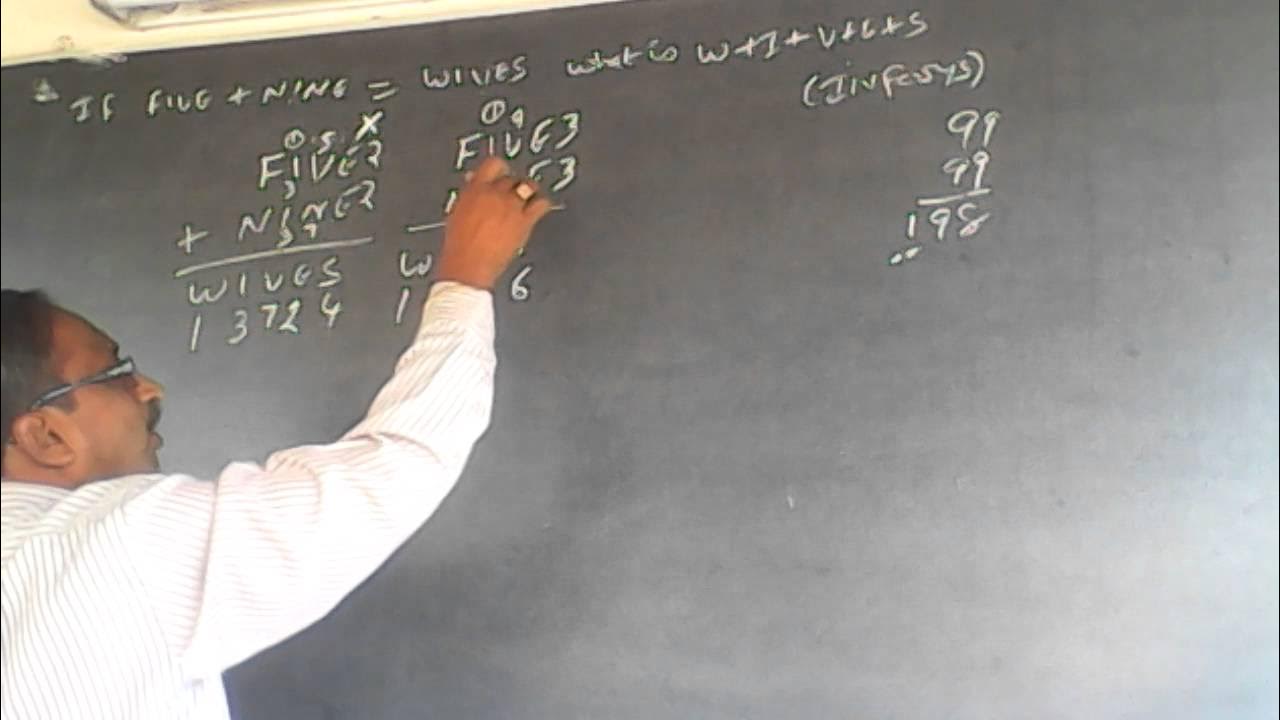 IF FIVE + NINE = WIVES what is W+I+V+E+S
(Infosys)
① 5 X
FIVE2
3
+ NINE2
3 9
WIVES
1 3 7 2 4
① 9
FIVE3
E3
W
1 6
99
99
198